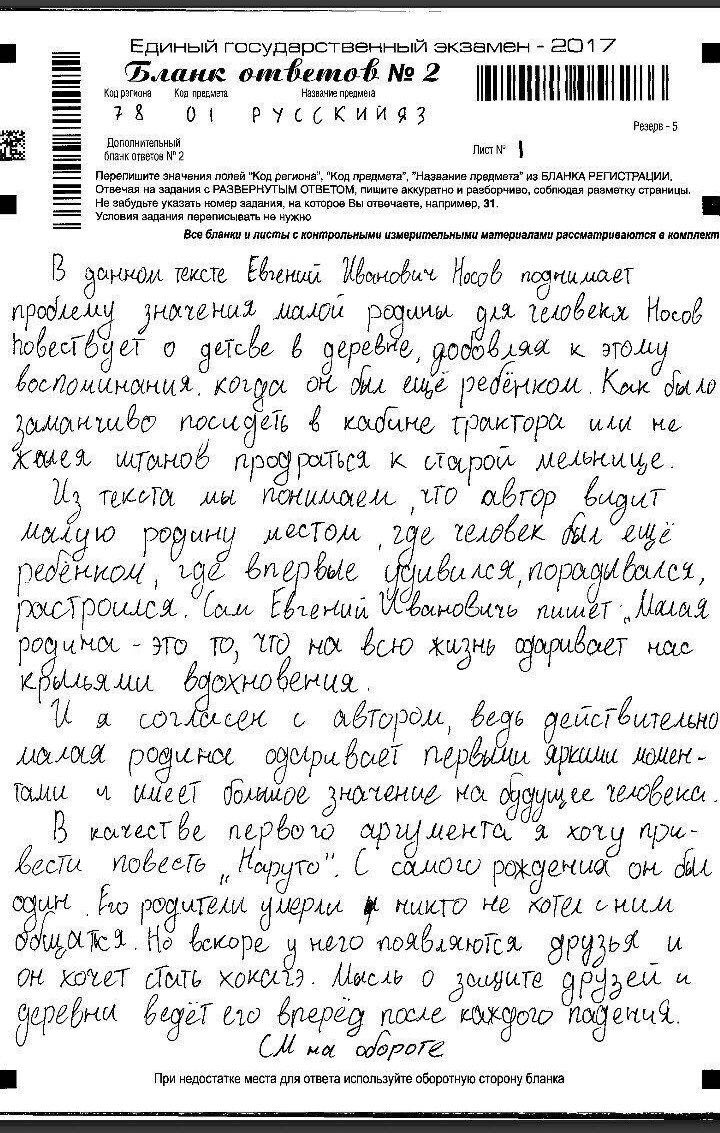 Единый государственный экзамен - 2017
Бланк ответов № 2
Код региона Код предмета Название предмета
78 01 РУССКИЙ ЯЗ
Резерв - 5
Дополнительный
бланк ответов № 2
Лист № 1
Перепишите значения полей "Код региона", "Код предмета", "Название предмета" из БЛАНКА РЕГИСТРАЦИИ.
Отвечая на задания с РАЗВЕРНУТЫМ ОТВЕТОМ, пишите аккуратно и разборчиво, соблюдая разметку страницы.
Не забудьте указать номер задания, на которое Вы отвечаете, например, 31.
Условия задания переписывать не нужно
Все бланки и листы с контрольными измерительными материалами рассматриваются в комплект
В данном тексте Евгений Иванович Носов поднимает
проблему значения малой родины для человека Носов
повествует о детсве в деревне, добовляя к этому
воспоминания. когда он был ещё ребёнком. Как было
заманчиво посидеть в кабине трактора или не
жалея штанов продраться к старой мельнице.
Из текста мы понимаем, что автор видит
малую родину местом, где человек был ещё
ребёнком, где впервые удивился, порадывался,
растроился. Сам Евгений Ивановичь пишет: „Малая
родина - это то, что на всю жизнь одаривает нас
крыльями вдохновения.
И я согласен с автором, ведь действительно
малая родина одаривает первыми яркими момен-
тами и имеет большое значение на будущее человека.
В качестве первого аргумента я хочу при-
вести повесть „Наруто". С самого рождения он был
один. Его родители умерли и никто не хотел с ним
общатся. Но вскоре у него появляются друзья и
он хочет стать хокагэ. Мысль о защите друзей и
деревни ведёт его вперёд после каждого падения.
СМ на обороте
При недостатке места для ответа используйте оборотную сторону бланка